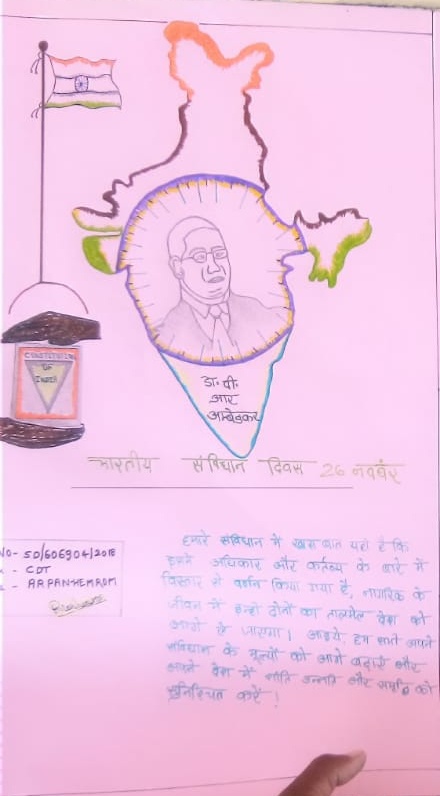 CONSTITUTION
OF
INDIA
डा॰ वी॰
आर
अम्बेडकर
भारतीय संविधान दिवस 26 नवबंर
NO- SD/606904/2018
- CDT
- ARPAN HEMROM
हमारे संविधान में खास बात यही है कि
इसमे अधिकार और कर्तव्य के बारे में
विस्तार से वर्णन किया गया है, नागरिक के
जीवन में इन्ही दोनों का तालमेल देश को
आगे ले जाएगा। आइये, हम सभी अपने
संविधान के मूल्यों को आगे बढ़ाएं और
अपने देश में शांति उन्नति और समृद्धि को
सुनिश्चित करें!